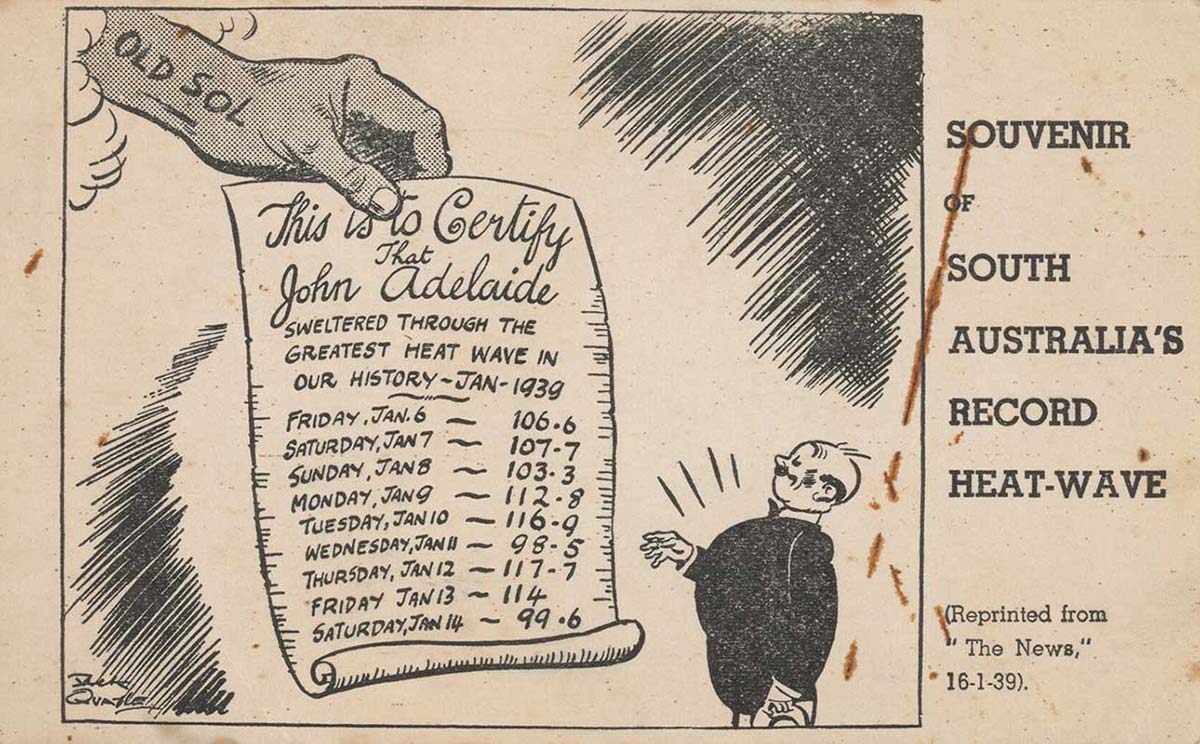 OLD SOL
This is to Certify
That
John Adelaide
SWELTERED THROUGH THE
GREATEST HEAT WAVE IN
OUR HISTORY - JAN - 1939
FRIDAY. JAN. 6 — 106.6
SATURDAY, JAN 7 — 107.7
SUNDAY, JAN 8 — 103.3
MONDAY, JAN 9 — 112.8
TUESDAY, JAN 10 — 116.9
WEDNESDAY, JAN 11 — 98.5
THURSDAY, JAN 12 — 117.7
FRIDAY JAN 13 — 114
SATURDAY, JAN 14 — 99.6
SOUVENIR
OF
SOUTH
AUSTRALIA'S
RECORD
HEAT-WAVE
(Reprinted from
" The News,"
16-1-39).